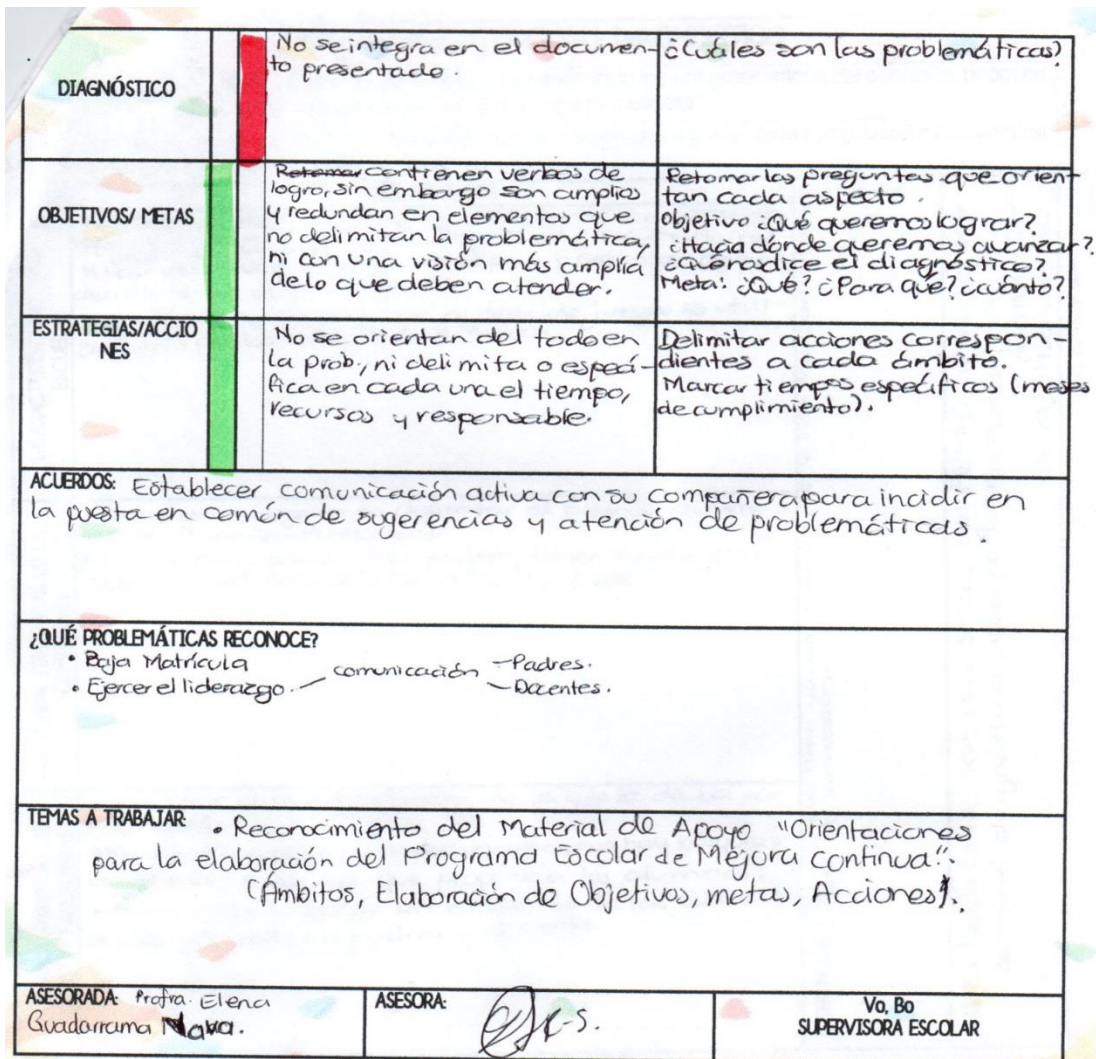 DIAGNÓSTICO
No se integra en el documen-
to presentado.
¿Cuáles son las problemáticas?
OBJETIVOS/ METAS
Retomar contienen verbos de
logro, sin embargo son amplios
y redundan en elementos que
no delimitan la problemática,
ni con una visión más amplia
de lo que deben atender.
Retomar las preguntas que orien-
tan cada aspecto.
Objetivo: ¿Qué queremos lograr?
¿Hacia dónde queremos avanzar?
¿Qué nos dice el diagnóstico?
Meta: ¿Qué? ¿Para qué? ¿cuánto?
ESTRATEGIAS/ACCIO
NES
No se orientan del todo en
la prob., ni delimita o especí-
fica en cada una el tiempo,
recursos y responsable.
Delimitar acciones correspon-
dientes a cada ámbito.
Marcar tiempos específicos (meses
de cumplimiento).
ACUERDOS: Establecer comunicación activa con su compañera para incidir en
la puesta en común de sugerencias y atención de problemáticas.
¿QUÉ PROBLEMÁTICAS RECONOCE?
• Baja Matrícula
• Ejercer el liderazgo. — comunicación – Padres.
– Docentes.
TEMAS A TRABAJAR: • Reconocimiento del Material de Apoyo "Orientaciones
para la elaboración del Programa Escolar de Mejora continua".
(Ámbitos, Elaboración de Objetivos, metas, Acciones).
ASESORADA: Profra. Elena
Guadarrama Nava.
ASESORA:
Vo, Bo
SUPERVISORA ESCOLAR